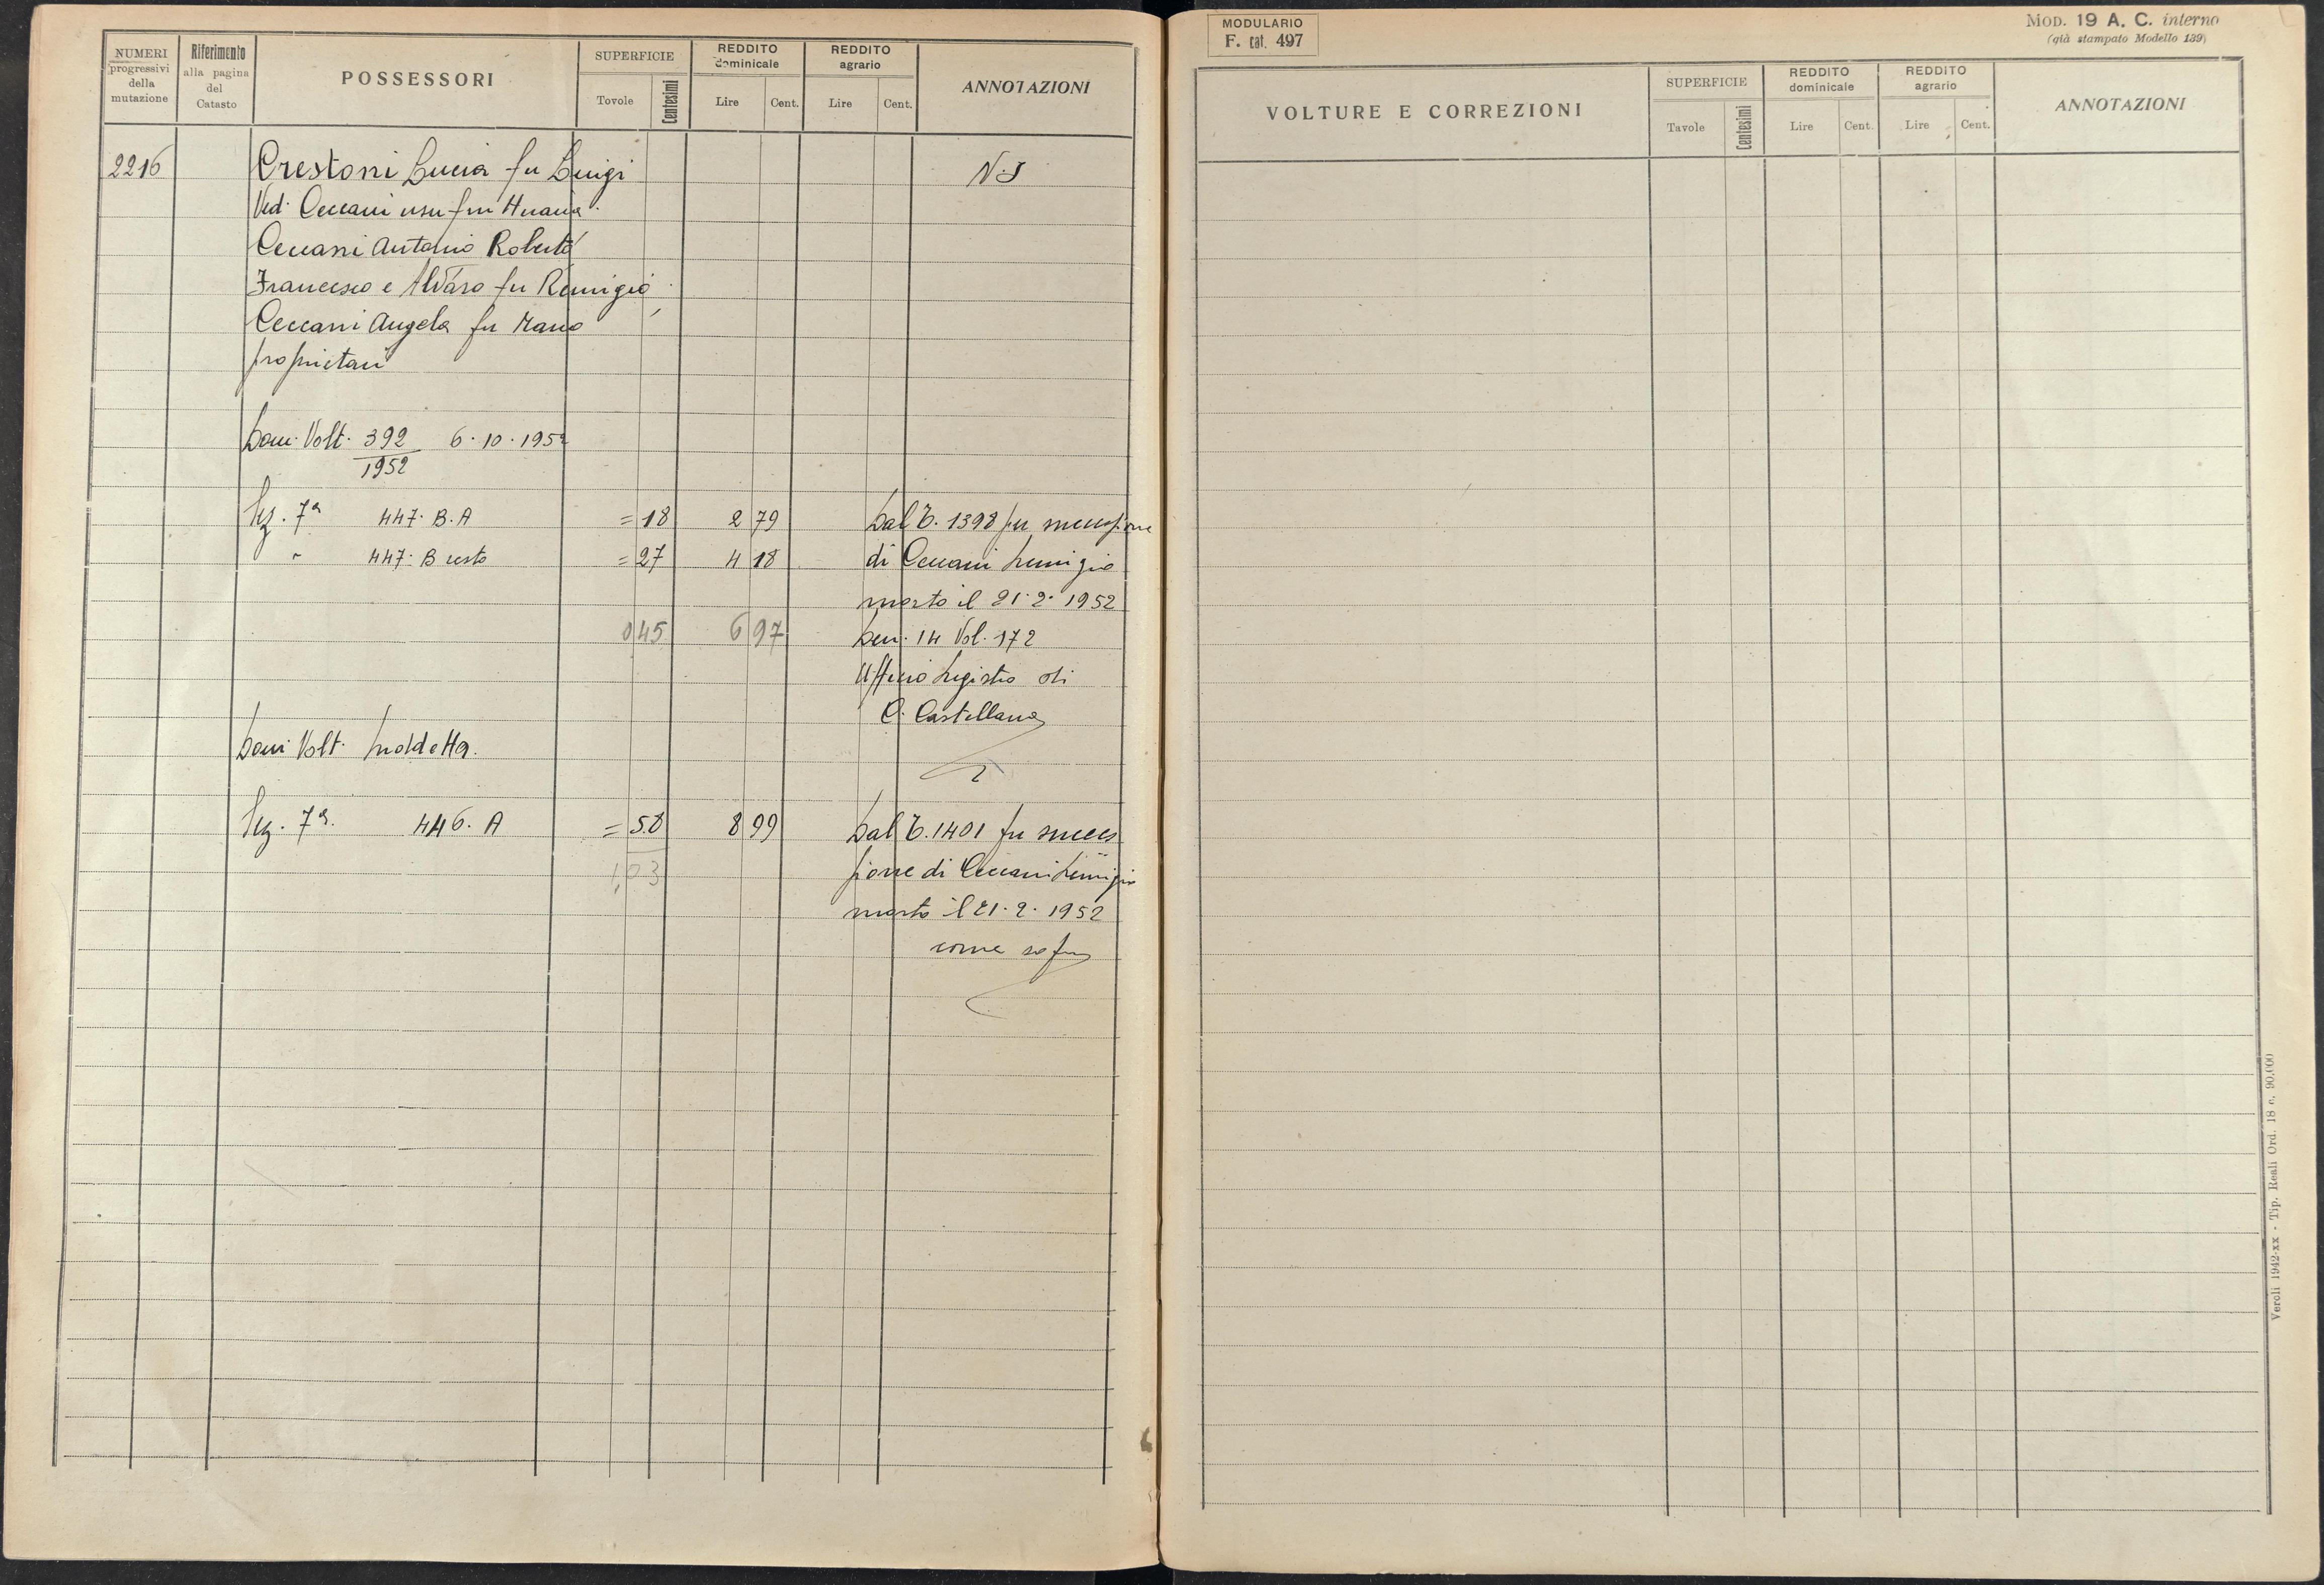 NUMERI progressivi della mutazione
Riferimento alla pagina del Catasto
POSSESSORI
SUPERFICIE
Tovole
Centesimi
REDDITO dominicale
Lire
Cent.
REDDITO agrario
Lire
Cent.
ANNOTAZIONI
2216
Crestoni Lucia fu Luigi
N.I
Ved. Ceccani usu fru
Ceccani Antonio Roberto
Francesco e Alvaro fu Remigio
Ceccani Angela fu Mario
proprietari
Dom. Volt. 392 6.10.1952
1952
Sez. 7ª 447. B.A = 18 2 79 Dal C. 1398 per successione
" 447. B resto = 27 4 18 di Ceccani Remigio
morto il 21.2.1952
0 45 6 97 Den. 14 Vol. 172
Ufficio Registro di
C. Castellana
Dom Volt. suddetta.
Sez. 7ª. 446. A = 58 8 99 Dal C. 1401 per succes
1,03 sione di Ceccani Remigio
morto il 21.2.1952
come sopra
MODULARIO
F. cat. 497
MOD. 19 A. C. interno
(già stampato Modello 139)
VOLTURE E CORREZIONI
SUPERFICIE
Tavole
Centesimi
REDDITO dominicale
Lire
Cent.
REDDITO agrario
Lire
Cent.
ANNOTAZIONI
Veroli 1942-xx - Tip. Reali Ord. 18 c. 90.000